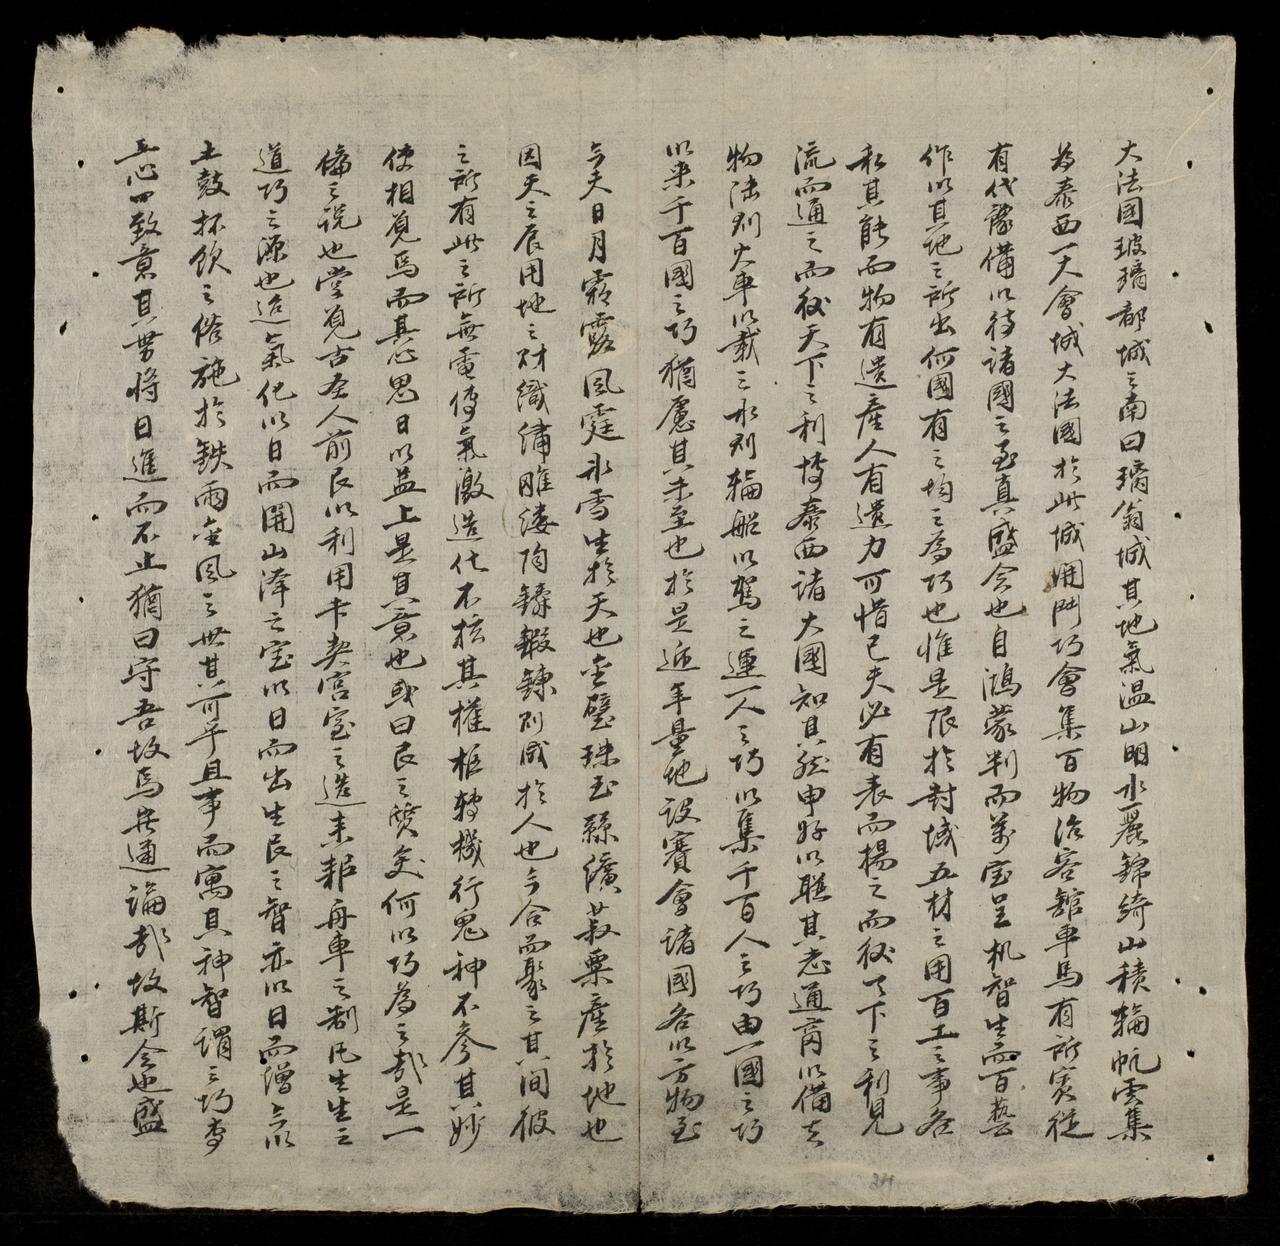 大法國玻璃都城之南曰璃翁城其地氣温山明水麗錦綺山積輪帆雲集
為泰西一大會城大法國於此城開鬥巧會集百物治客館車馬有所賓從
有代豫備以待諸國之至真盛会也自鴻蒙判而萬宝呈机智生而百藝
作以其地之所出何國有之均之為巧也惟是限於封域五材之用百工之事各
私其能而物有遺産人有遺力可惜已夫必有表而揚之而後天下之利見
流而通之而後天下之利博泰西諸大國知其然申好以聯其志通商以備其
物陆則火車以載之水則輪船以駕之運一人之巧以集千百人之巧由一國之巧
以来千百國之巧猶慮其未至也於是遞年量地設賽會諸國各以方物至
今夫日月霜露風霆氷雪生於天也金璧珠玉絲纊菽粟産於地也
因天之辰用地之財織繡雕鏤陶鑄鍛鍊則成於人也今合而聚之其间彼
之所有此之所無電傳氣激造化不挍其權樞轉機行鬼神不參其妙
使相覓焉而其心思日以益上是其意也或曰民之质矣何以巧為之哉是一
偏之説也嘗覓古圣人前民以利用卡契宫室之造耒耜舟車之制凡生生之
道巧之源也迨氣化以日而開山澤之宝以日而出生民之智亦以日而增今以
土鼓抔飲之俗施於鉄雨金風之世其可乎且事而寓其神智謂之巧専
工心四致意其势将日進而不止猶曰守吾故焉豈通論哉故斯会也盛